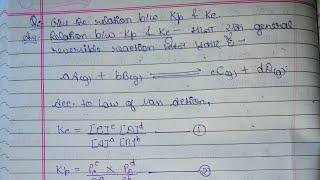 Q:- Give the relation b/w Kp & Kc.
Relation b/w Kp & Kc – माना एक general
reversible reaction
aA(g) + bB(g) ⇌ cC(g) + dD(g)
Acc. to Law of mass action,
Kc = [C]^c [D]^d / [A]^a [B]^b ①
Kp = P_C^c × P_D^d ②